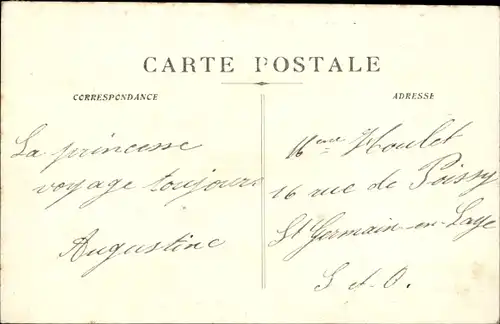 CARTE POSTALE
CORRESPONDANCE
ADRESSE
La princesse
voyage toujours
Augustine
Mme Houlet
16 rue de Poissy
St Germain-en-Laye
S et O.